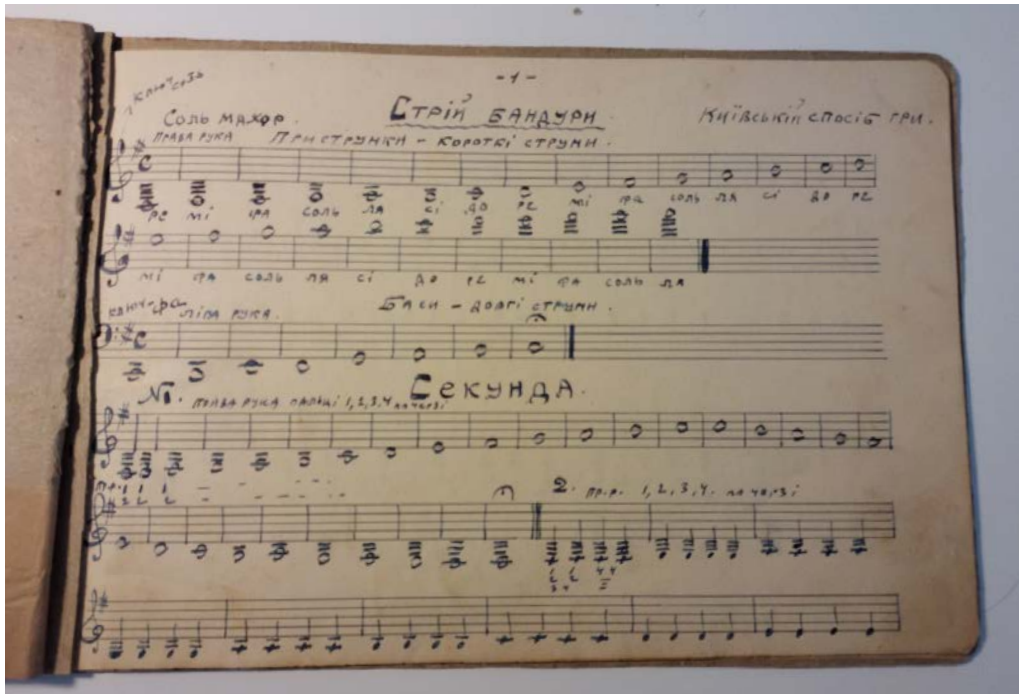 -1-
ключ соль
Соль мажор. Стрій бандури Київській спосіб гри.
права рука Приструнки - короткі струни.
ре мі фа соль ля сі до ре мі фа соль ля сі до ре
мі фа соль ля сі до ре мі фа соль ля
ключ фа ліва рука. Баси - довгі струни.
Секунда.
№1. права рука пальці 1, 2, 3, 4 по черзі
2. пр.р. 1, 2, 3, 4. по черзі